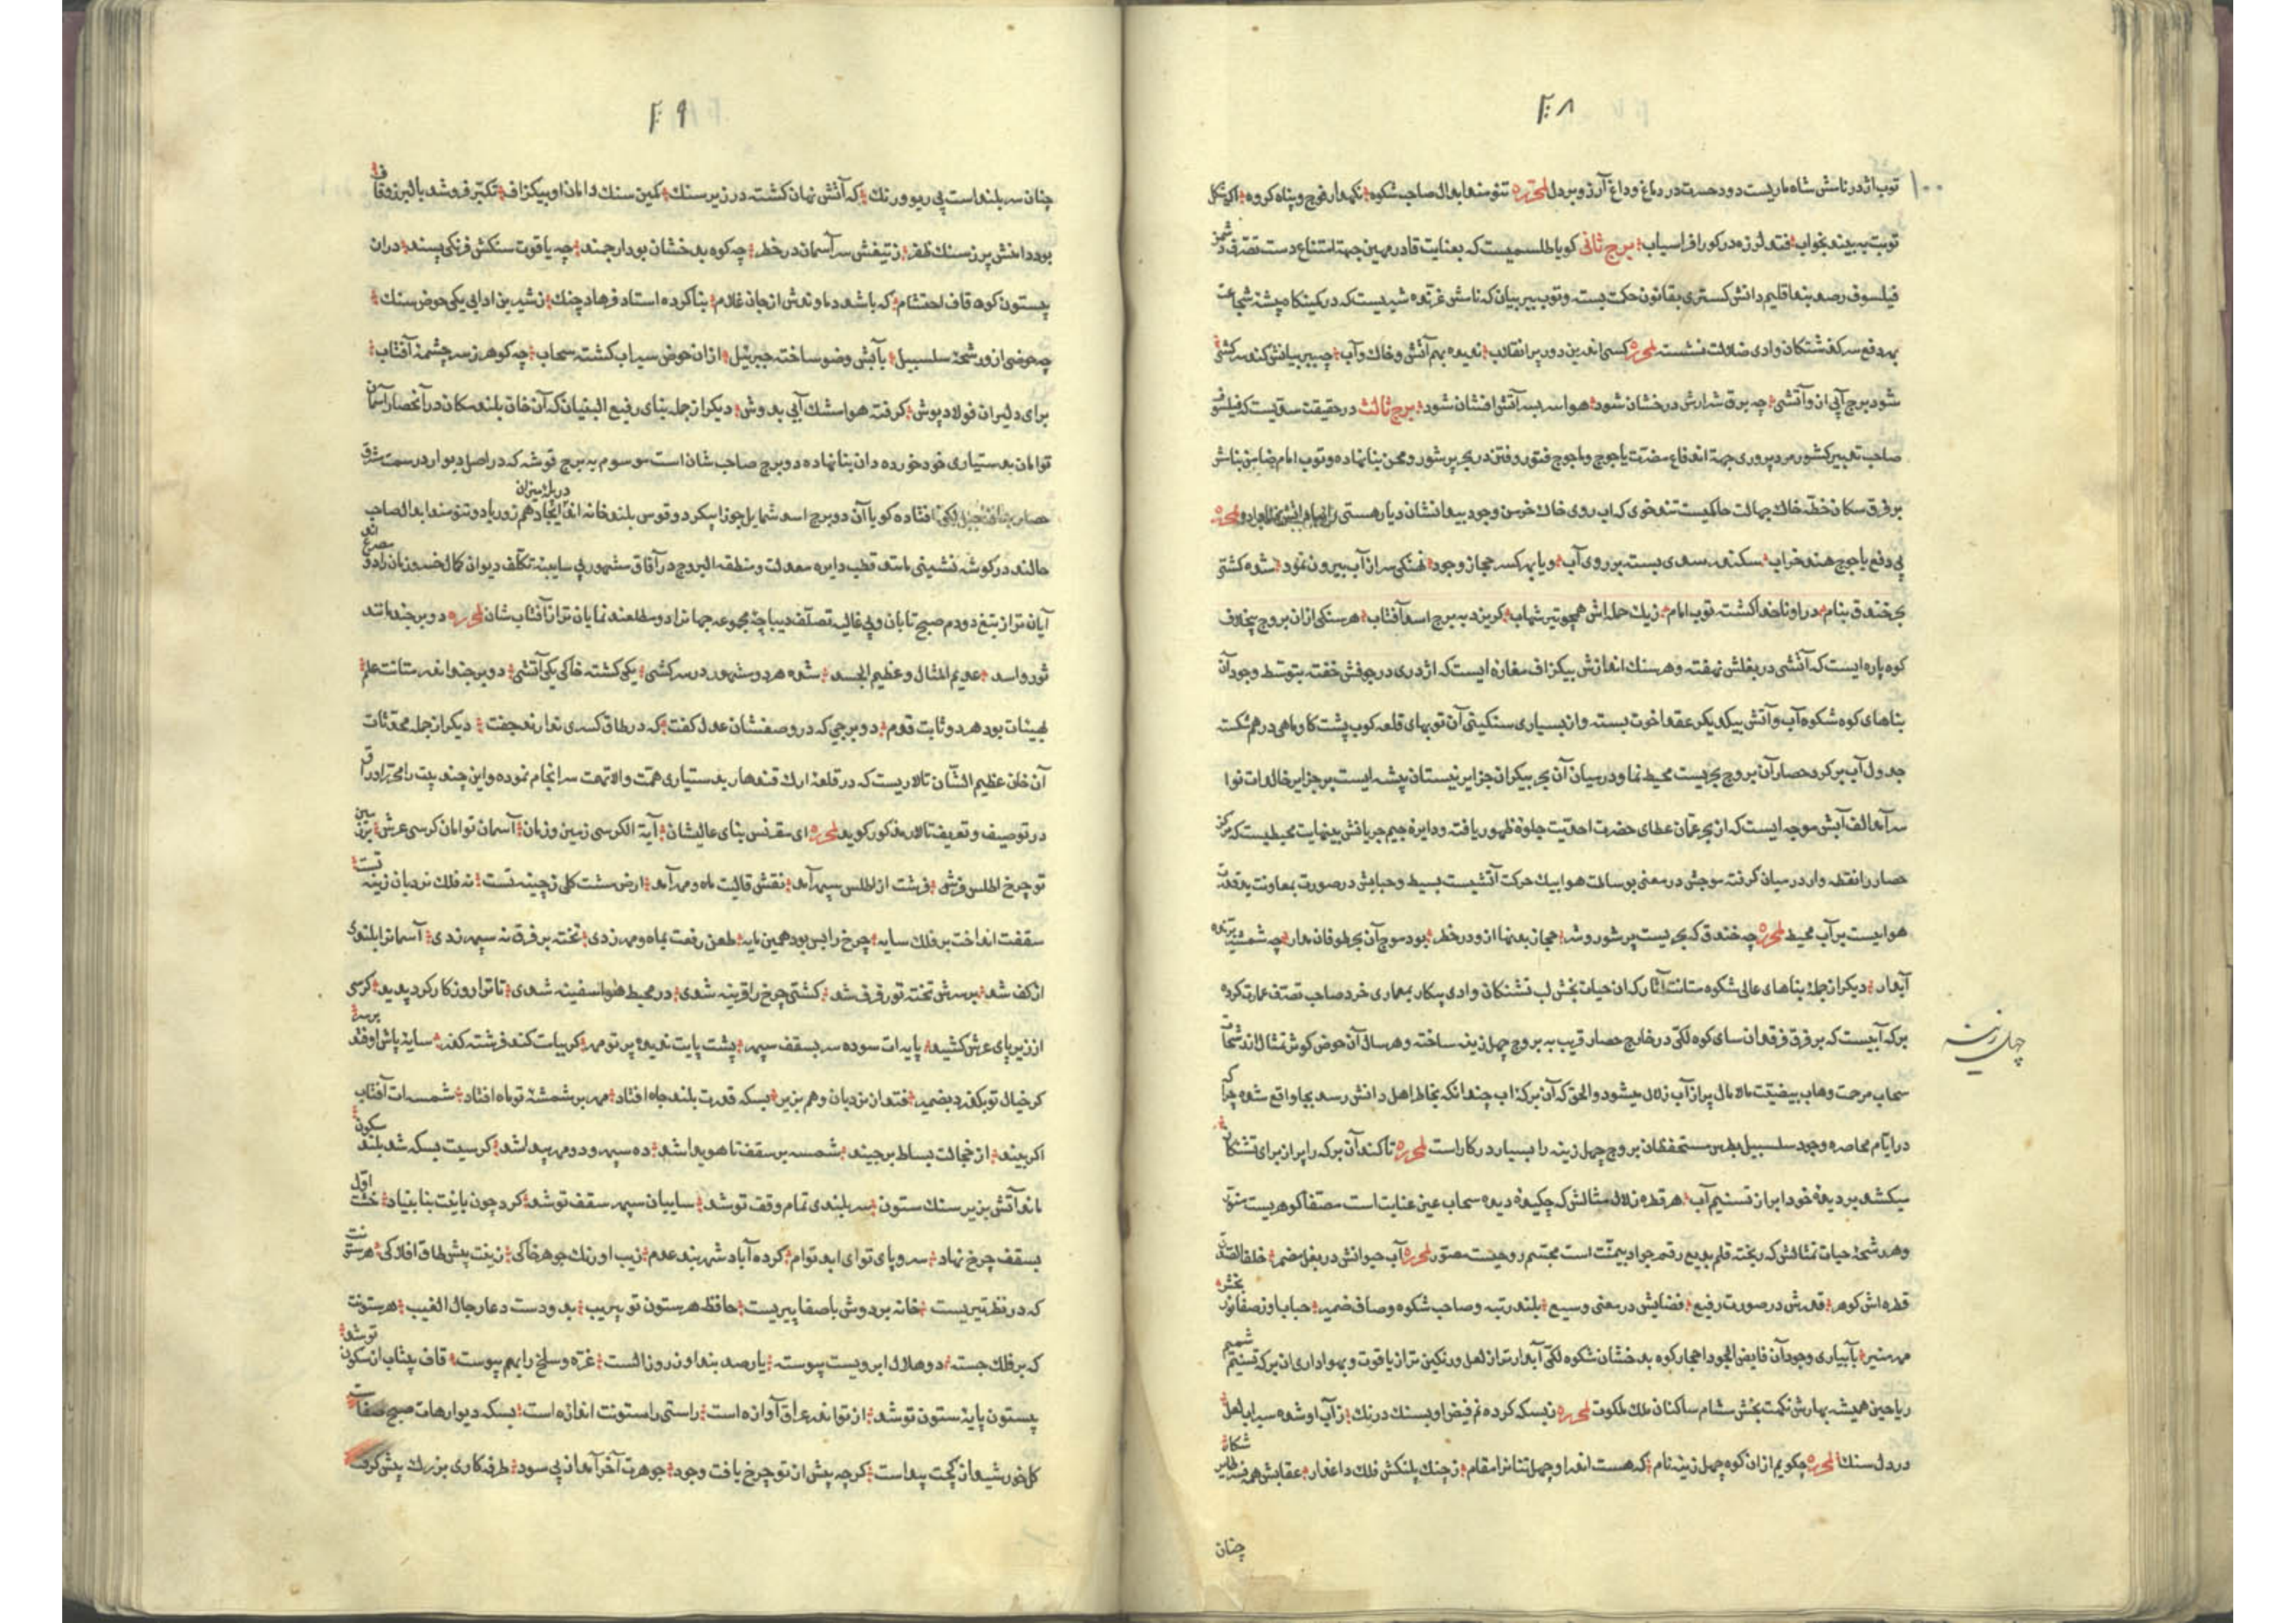 ۲۰۸
توب اژدر نامش شاه ماریست دود حسرت در دماغ و داغ آرزو بر دل لمحرره تنومند ابدال صاحب شکوه نکهدار فوج و پناه کروه اکر شکل
توبت به بیند بخواب فتد لرزه در کور افراسیاب برج ثانی کویا طلسمیست که بعنایت قادر مهین جهة امتناع دست تصرف دشمن
فیلسوف رصد بند اقلیم دانش کستری بقانون حکمت بسته و توب ببر بیان که نامش غرنده شیریست که در کمینکاه پیشه شجاعت
بهر دفع سرکشتکان وادی ضلالت نشسته لمحرره کسی اندرین دور پر انقلاب ندیده بهم آتش و خاک و آب چو ببر بیانش کند سرکشی
شود برج آبی ازو آتشی چه برق شرارش درخشان شود هوا سربسر آتش افشان شود برج ثالث در حقیقت سدیست که فیلسوف
صاحب تدبیر کشور مرد پروری جهة اندفاع مضرت یاجوج و ماجوج فتور و فتن در بحر پر شور و محن بنا نهاده و توب امام ضامن بناش
بر فرق سکان خطه خاک جهالت حاکیست تند خوی که اب روی خاک خرمن وجود بیدانشان دیار هستی لمحرره
پی دفع یاجوج هند خراب سکندر سدی بست بر روی آب و یا بهر کسر جهاز وجود نهنکی سر از آب بیرون نمود شده کشتی
بحر خندق بنام در او ناخدا کشته توب امام زبک حمله اش همچو تیر شهاب کریزد به برج اسد آفتاب هر سنکی ازان بروج بیخلاف
کوه پاره ایست که آتشی در بغلش نهفته و هر سنک اندازش بیکزاف مغاره ایست که اژدری در جوفش خفته بتوسط وجود آن
بناهای کوه شکوه آب و آتش بیکدیکر عقد اخوت بسته و از بسیاری سنکینی آن توبهای قلعه کوب پشت کاو ماهی در هم شکسته
جدول آب بر کرد حصار آن بروج بحریست محیط نما و در میان آن بحر بیکران جزایر نیستان پیشه ایست بر جزایر خالدات نوا
سرآمد الف آبش موجه ایست که از بحر عمان عطای حضرت احدیت جلوه ظهور یافته و دایره جیم جریانش بینهایت محیطیست که مرکز
حصار را نقطه وار در میان کرفته موجش در معنی بوساطت هوا بیک حرکت آتشیست بسیط و حبابش در صورت بمعاونت بدقدرت
هوایست بر آب محیط لمحرره چه خندق که بحریست پر شور و شر جهاز بدنها ازو در خطر بود موج آن بحر طوفان مدار چه شمشیر برنده
آبدار دیکر از جمله بناهای عالی شکوه متانت آثار که ازان حیات بخش لب تشنکان وادی پیکار بمعماری خرد صاحب تصرف عمارت کرده
برکه آبیست که بر فرق فرقدان سای کوه لکی در خارج حصار قریب به بروج چهل زینه ساخته و هر سال آن حوض کوثر مثال از رشحات
سحاب مرحمت وهاب بیضنت مالامال پر از آب زلال میشود و الحق که آن برکه اب چندانکه بخاطر اهل دانش رسد بجا واقع شده چرا که
در ایام محاصره وجود سلسبیل بهر مستحفظان بروج چهل زینه را بسیار در کار است لمحرره تا کند آن برکه را پر از برای تشنکان
میکشد بر دیده خود ابر از تسنیم آب هر قطره زلال مثالش که چکیده دیده سحاب عین عنایت است مصفا کوهریست منور
و هر رشحه حیات تمثالش که ریخته قلم بدیع رقم جواد بیمنت است مجسم روحیست مصور لمحرره آب حیوانش در بغل مضمر خلف الصدق
قطره اش کوهر قدرش در صورت رفیع فضایش در معنی وسیع بلند رتبه و صاحب شکوه و صاف ضمیر حباب او ز صفا نور بخش
مهر منیر بآبیاری وجود آن فایض الجود احجار کوه بدخشان شکوه لکی آبدارتر از لعل و رنکین تر از یاقوت و بهواداری ان برکه تسنیم شمیم
ریاحین همیشه بهارش نکهت بخش مشام ساکنان ملک ملکوت لمحرره ز بسکه کرده نم فیض او بسنک درنک ز آب او شده سیراب لعل
در دل سنک لمحرره چکویم ازان کوه چهل زینه نام که هست اندر او چهل تنانرا مقام ز چنک پلنکش فلک داغدار عقابش همه نسر طایر شکار
چنان
۱۰۰
چهل زینه
۲۰۹
چنان سربلند است بی ریو و رنک که آتش نهان کشته در زیر سنک کمین سنک دامان او بیکزاف تکبر فروشد بالبرز و قاف
بود دامنش پر ز سنک ظفر ز تیغش سر آسمان در خطر چه کوه بدخشان بود ارجمند چه یاقوت سنکش فرنکی پسند دران
بیستون کوه قاف احتشام که باشد دماوندش از جان غلام بنا کرده استاد فرهاد چنک ز شیرین ادایی یکی حوض سنک
چه حوضی ازو رشحه سلسبیل بآبش وضو ساخته جبرئیل ازان حوض سیراب کشته سحاب چه کوهر ز سرچشمه آفتاب
برای دلیران فولاد پوش کرفته هوا مشک آبی بدوش دیکر از جمله بنای رفیع البنیان که آن خان بلند مکان در آنحصار آسمان
توامان بدستیاری خود خورده دان بنا نهاده دو برج صاحب شان است موسوم به برج قوشه که در اصل دیوار در سمت شرق
حصار افتاده کویا آن دو برج اسد شمایل جوزا پیکر دو قوس بلند خانه اند در پله میزان ایجاد هم زور یا دو تنومند ابدال صاحب
حالند در کوشه نشینی مانند قطب دایره معدلت و منطقه البروج در آفاق مشهور بی سایبه تکلف دیوان کمال خسرو زمان را دو مصرع اند
آیان تر از تیغ دودم صبح تابان و بی غالیه تصلف دیباچه مجموعه جهانرا دو مطلعند نمایان تر از آفتاب شان لمحرره دو برجند مانند
ثور و اسد عدیم المثال و عظیم الجسد شده هر دو مشهور در سرکشی یکی کشته خاکی یکی آتشی دو برجند اندر متانت علم
بهیئات بود هر دو ثابت قدم دو برجی که در وصفشان عدل کفت که در طاق کسری ندارند جفت دیکر از جمله محدثات
آن خان عظیم الشان تالاریست که در قلعه ارک قندهار بدستیاری همت والا نهمت سرانجام نموده و این چند بیت را محرر اوراق
در توصیف و تعریف تالار مذکور کوید لمحرره ای مقرنس بنای عالیشان آیة الکرسی زمین و زمان آسمان توامان کرسی عرش برترین
تو چرخ اطلس فرش فرشت از اطلس سپهر آمد نقش قالیت ماه و مهر آمد ارض مشت کلی ز چینه تست نه فلک نردبان زینه تست
سقفت انداخت بر فلک سایه چرخ را بس بود همین مایه طعن رفعت بماه و مهر زدی تخته بر فرق نه سپهر زدی آسمانرا بلندی
از کف شد برسرش تخته تو رفرف شد کشتی چرخ را قرینه شدی در محیط هوا سفینه شدی تا ترا روزکار کرد پدید کرسی
از زیر پای عرش کشید پایه ات سوده سر بسقف سپهر پشت پایت ندیده پرتو مهر کربیات کند فرشته کذر سایه پاش اوفتد برسر
کر خیال تو بکذرد بضمیر فتد از نردبان وهم بزیر بسکه قدرت بلند جاه افتاد مهر بر شمشهٔ تو ماه افتاد شمسه ات آفتاب
اکر بیند از خجالت بساط برچیند شمسه بر سقفت تا هویدا شد ده سپهر و دو مهر پیدا شد کرسیت بسکه شد بلند سکون
ماند آتش بزیر سنک ستون سربلندی تمام وقف تو شد سایبان سپهر سقف تو شد کرد چون بانیت بنا بنیاد خشت اول
بسقف چرخ نهاد سر و پای تو ای ابد توام کرده آباد شهر بند عدم زیب اورنک جوهر خاکی زینت پیش طاق افلاکی هر ستونت
که در نظر تیریست خانه بردوش باصفا پیریست حافظ هر ستون تو بیریب بدو دست دعا رجال الغیب هر ستونت
که بر فلک جسته دو هلال ابرویست پیوسته یا رصد بند او ز روز الست غره و سلخ را بهم پیوست قاف بیتاب از سکون تو شد
بیستون پایه ستون تو شد از تو اندر عراق آوازه است راستی راستونت اندازه است بسکه دیوارهات صبح صفات
کل خورشید از کچت پیداست کرچه پیش از تو چرخ یافت وجود جوهرت آخر آمد ازپی سود طرفه کاری بزرک پیش کرفت